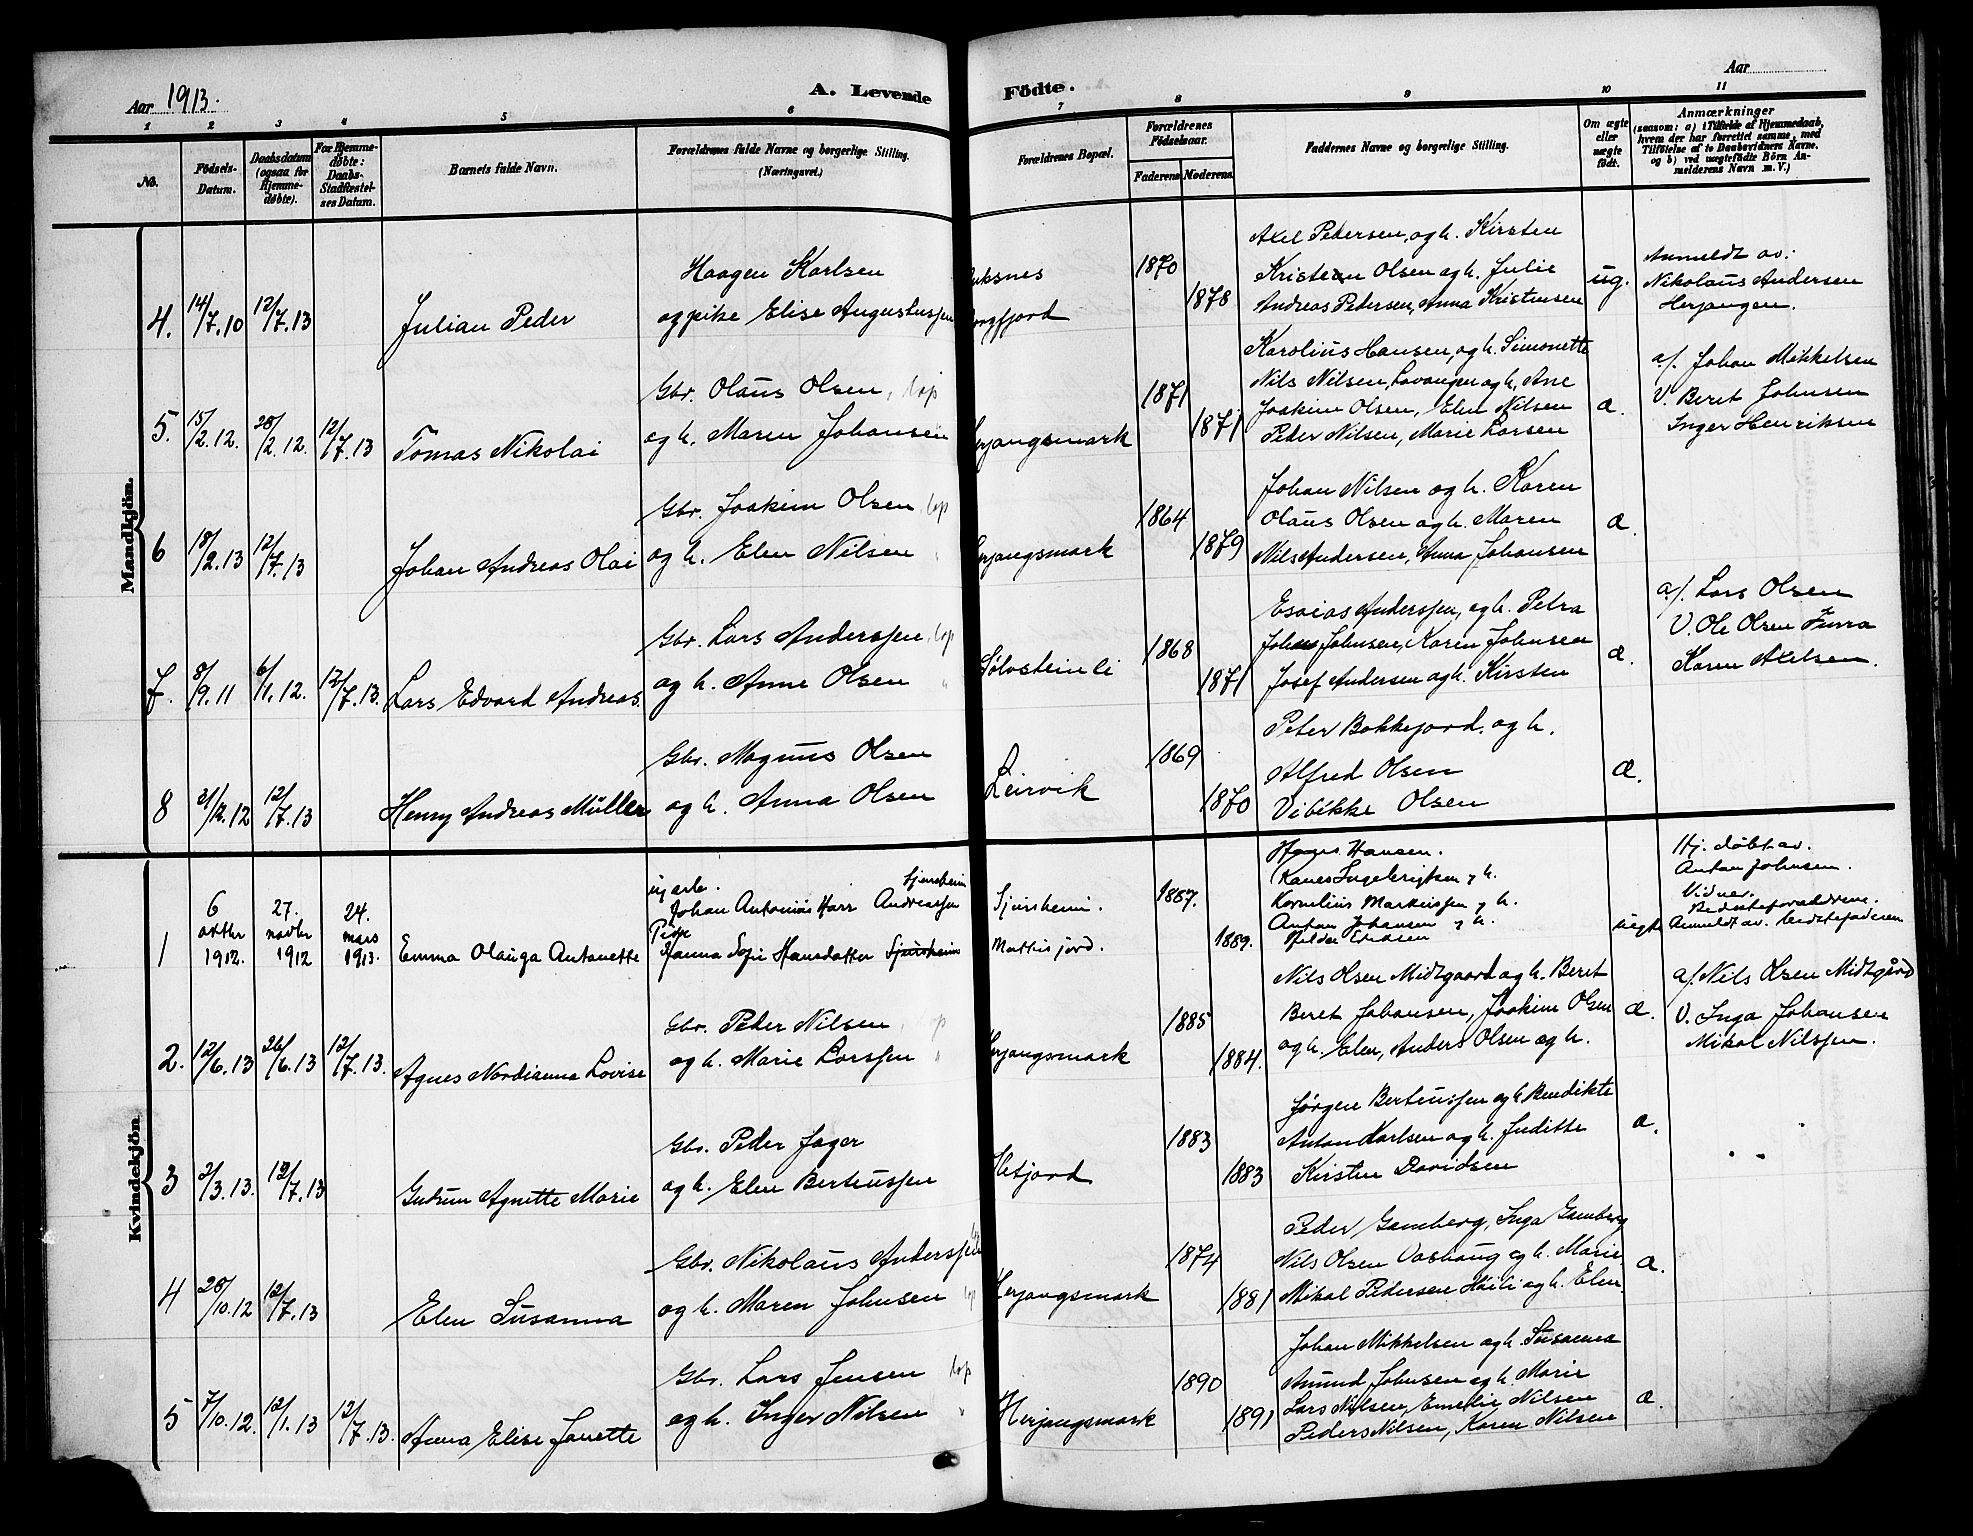 Aar 1913. A. Levende Födte. Aar
1 2 3 4 5 6 7 8 9 10 11
No. Födsels-Datum. Daabsdatum (ogsaa for Hjemme-døbte). For Hjemme-døbte: Daabs-Stadfæstel-ses Datum. Barnets fulde Navn. Forældrenes fulde Navne og borgerlige Stilling. (Næringsvei.) Forældrenes Bopæl. Forældrenes Fødselsaar. Faderens. Moderens. Faddernes Navne og borgerlige Stilling. Om ægte eller uægte født. Anmærkninger (saasom: a) i Tilfælde af Hjemmedaab, hvem der har forrettet samme, med Tilføielse af to Daabsvidners Navne. og b) ved uægtefødte Börn An-melderens Navn m. V.)
Mandkjön.
Axel Pedersen, og h. Kirsten
Haagen Karlsen 1870 Kristen Olsen og h. Julie ug. Anmeldt av:
Nikolaus Andersen
4. 14/7.10 12/7.13 Julian Peder og pike Elise Augustussen 1878 Andreas Pedersen, Anna Kristensen Herjangen.
Karolius Hansen, og h. Simonette
Gbr. Olaus Olsen, lap 1871 Nils Nilsen, Lavangen og h. Ane a/. Johan Mikkelsen
Joakim Olsen, Elen Nilsen æ. V. Beret Johnsen
5. 15/2.12. 28/2.12. 12/7.13 Tomas Nikolai og h. Maren Johansen erjangsmark 1871 Peder Nilsen, Marie Larsen Inger Henriksen
Johan Nilsen og h. Karen
Gbr. Joakim Olsen, lap 1864 Olaus Olsen og h. Maren æ.
6 18/2.13 12/7.13 Johan Andreas Olai og h. Elen Nilsen erjangsmark 1879 Nils Andersen, Anna Johansen
Esaias Anderssen, og h. Petra a/. Lars Olsen
Gbr. Lars Anderssen, lap 1868 Johan Johnsen, Karen Johnsen æ. V. Ole Olsen Furra
7. 8/9.11 6/1.12. 12/7.13. Lars Edvard Andreas. og h. Anne Olsen Sølvsteinli 1871 Josef Andersen og h. Kirsten Karen Axelsen.
Peter Bokkefjord. og h.
Gbr. Magnus Olsen 1869 Alfred Olsen æ.
8 12/7.13 Henry Andreas Müller og h. Anna Olsen Leirvik 1870 Vibekke Olsen
Kvindekjön.
Hansen. Hj. døbt av.
ug arb. 1887. Ingebrigtsen og h. Anton Johnsen.
Johan Antonius Harr Andreassen Kornelius Markussen og h. Vidner.
6 oktbr 1912. 27. novbr 1912 24. mars 1913. Pike Anton Johansen og h. Bedsteforældrene.
1 Emma Olauga Antonette Hanna Sofie Hansdatter 1889. uegte Anmeldt av. bedstefaderen
Nils Olsen Midtgaard og h. Beret a/. Nils Olsen Midtgård
Gbr. Peder Nilsen, lap 1885 Beret Johansen, Joakim Olsen æ. V. Inga Johansen
2. 12/6.13 26/6.13 12/7.13. Agnes Nordianna Lovise og h. Marie Larssen erjangsmark 1884. og h. Elen, Anders Olsen og h. Mikal Nilssen.
Jørgen Berteussen og h. Bendikte
Gbr. Peder Jager 1883 Anton Karlsen og h. Juditte æ.
3 2/3.13. 12/7.13 Gudrun Agnette Marie og h. Elen Berteussen 1883 Kirsten Davidsen
Peder Gamberg, Inga Gamberg
Gbr. Nikolaus Anderssen 1874 Nils Olsen Vashaug og h. Marie. æ.
4 28/10.12 12/7.13 Elen Susanna og h. Maren Johnsen lap Herjangsmark 1881 Mikal Pedersen og h. Elen
Johan Mikkelsen og h. Susanna
Gbr. Lars Jensen lap 1890 Amund Johnsen og h. Marie
Lars Nilsen, Emelie Nilsen æ.
5 7/10.12. 12/1.13 12/7.13. Anna Elise Janette og h. Inger Nilsen Herjangsmark 1891 Peders Nilsen, Karen Nilsen